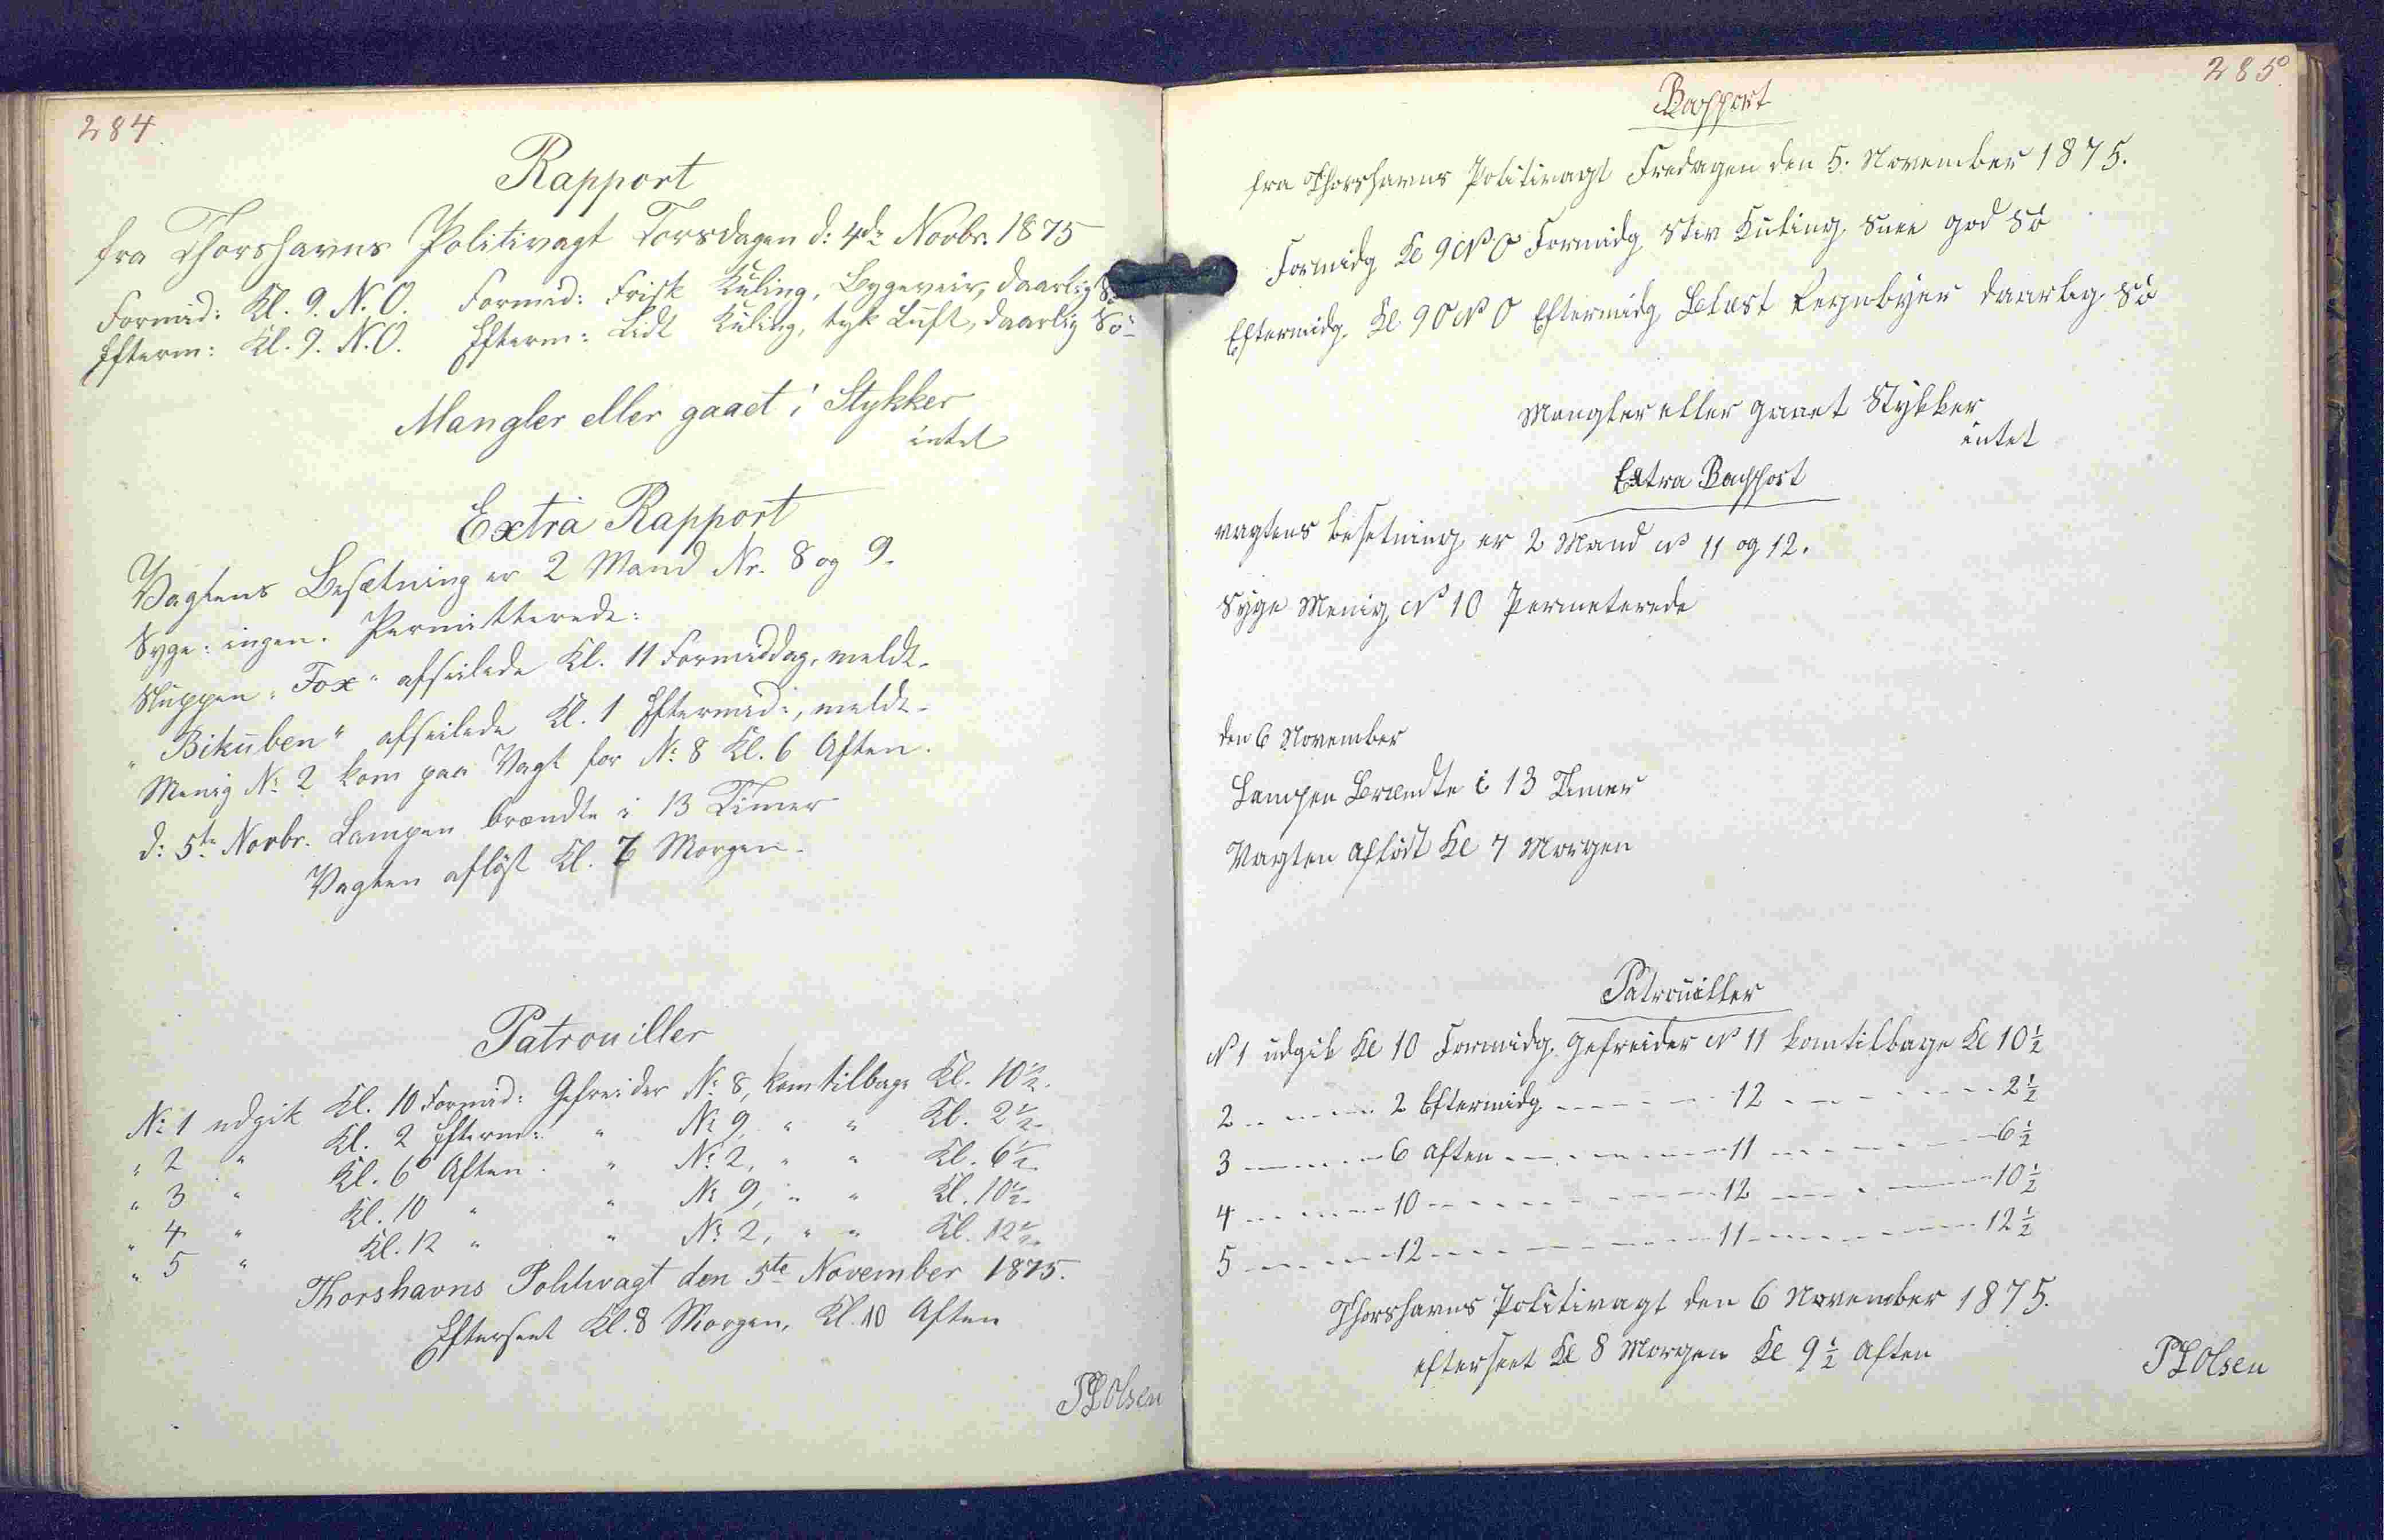 284.
Rapport
fra Thorshavns Politivagt Torsdagen d: 4de Novbr. 1875
Formid: Kl. 9. N.O. Formid: Frisk Kuling, Bygeveir, daarlig Sö
Efterm: Kl. 9. N.O. Efterm: Lidt Kuling, tyk Luft, daarlig Sö
Mangler eller gaaet i Stykker
intet
Extra Rapport
Vagtens Besætning er 2 Mand Nr. 8 og 9.
Syge: ingen. Permitterede:
Sluppen "Fox" afseilede Kl. 11 Formiddag, meldt.
" Bikuben" afseilede Kl. 1 Eftermid:, meldt.
Menig No 2 kom paa Vagt for No 8 Kl. 6 Aften.
d: 5te Novbr. Lampen brændte i 13 Timer
Vagten aflöst Kl. 7 Morgen.
Patrouiller
No 1 udgik Kl. 10 Formid: Gefreider No 8, kom tilbage Kl. 10½.
" 2 " Kl. 2 Efterm: " No 9, " " Kl. 2½
" 3 " Kl. 6 Aften. " No 2, " " Kl. 6½
" 4 " Kl. 10 " " No 9, " " Kl. 10½
" 5 " Kl. 12 " " No 2, " " Kl. 12½
Thorshavns Politivagt den 5te November 1875.
Efterseet Kl. 8 Morgen, Kl. 10 Aften
PLOlsen
285.
Rapport
fra Thorshavns Politivagt Fredagen den 5. November 1875.
Formidg Kl 9 N O Formidg Stiv Kuling Snee god Sö
Eftermidg. Kl 9 O N O Eftermidg Blæst Regnbyer daarlig Sö
Mangler eller gaaet Stykker
intet
Extra Rapport
vagtens besetning er 2 Mand No 11 og 12.
Syge Menig No 10 Permeterede
den 6 November
Lampen Brændte i 13 Timer
Vagten aflöst Kl 7 Morgen
Patrouiller
N 1 udgik Kl 10 Formidg. Gefreider No 11 kom tilbage Kl 10½
2 " " 2 Eftermidg " 12 " 2½
3 " 6 Aften " 11 " 6½
4 " 10 " 12 " 10½
5 " 12 " 11 " 12½
Thorshavns Politivagt den 6 November 1875.
efterseet Kl 8 Morgen Kl 9½ Aften
PLOlsen